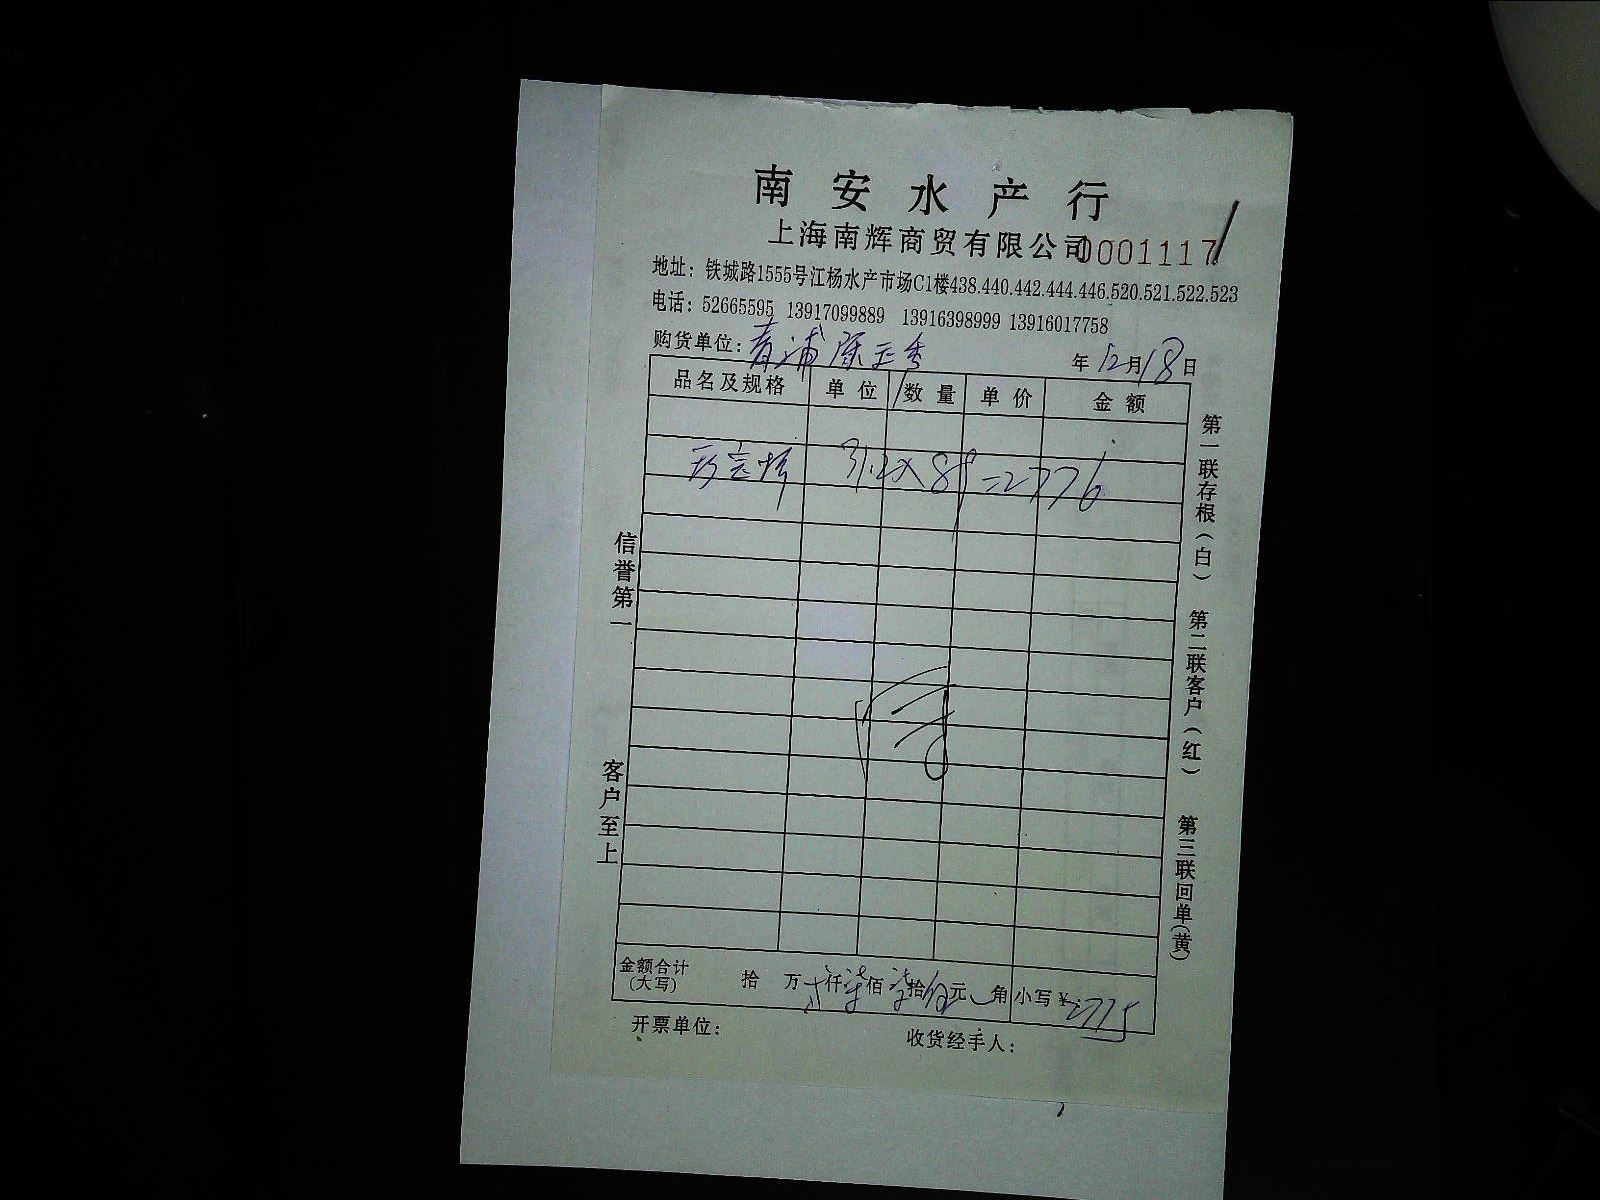 南安水产行
上海南辉商贸有限公司 0001117
地址：铁城路1555号江杨水产市场C1楼438.440.442.444.446.520.521.522.523
电话：52665595 13917099889 13916398999 13916017758
购货单位：青浦陈玉秀 年12月18日
品名及规格 单位 数量 单价 金额
31.2×89=2776
信誉第一
客户至上
第一联存根（白）
第二联客户（红）
第三联回单（黄）
金额合计（大写） 拾 万 仟柒佰柒拾伍元 角 小写￥：2775
开票单位： 收货经手人：